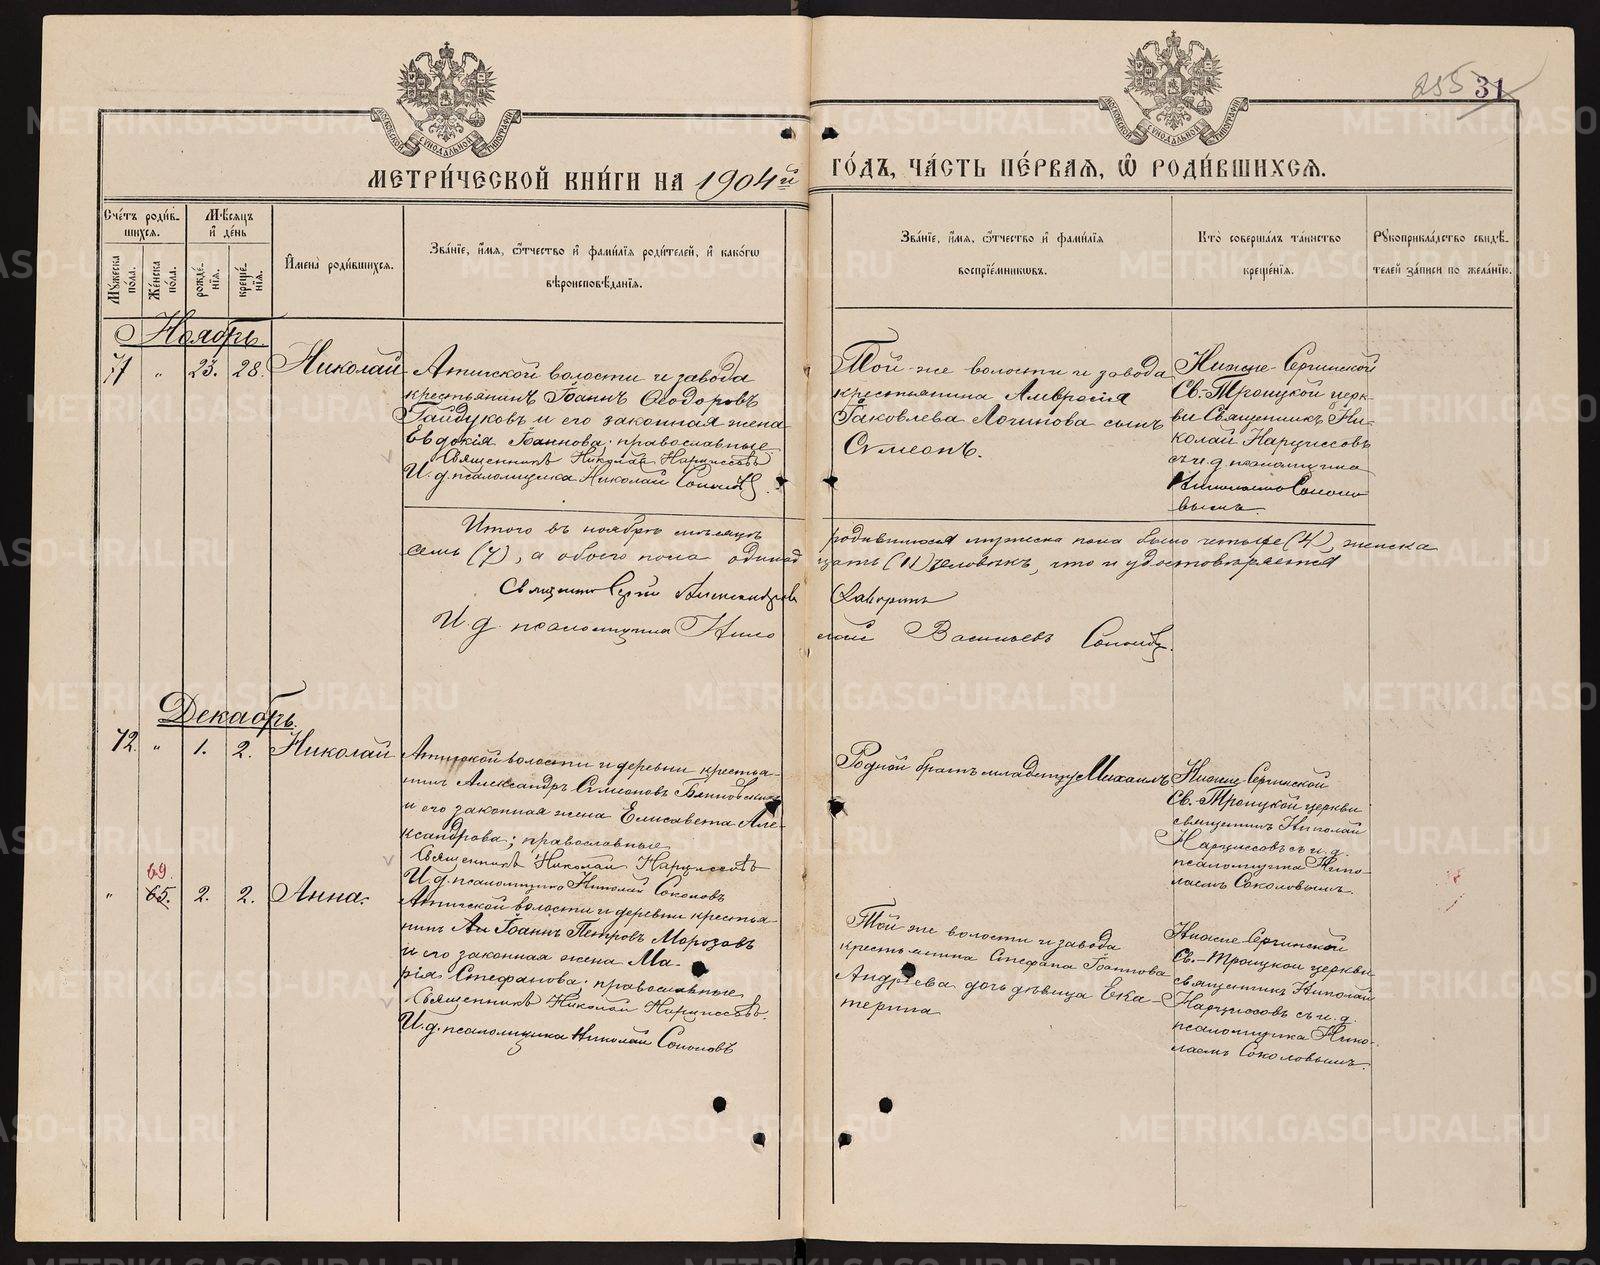 МОСКОВСКОЙ СѴНОДАЛЬНОЙ ТИПОГРАФІИ
МОСКОВСКОЙ СѴНОДАЛЬНОЙ ТИПОГРАФІИ
255 31
МЕТРИ́ЧЕСКОЙ КНИ́ГИ НА 1904й ГО́ДЪ, ЧА́СТЬ ПЕ́РВАѦ, Ѡ҆ РОДИ́ВШИХСѦ.
Сче́тъ роди́в-
шихсѧ.
Мꙋ́жеска по́ла.
Же́нска по́ла.
Мѣ́сѧцъ и҆ де́нь
рожде́-
нїѧ.
креще́-
нїѧ.
И҆мена̀ роди́вшихсѧ.
Зва́нїе, и҆́мѧ, ѻ҆́тчество и҆ фами́лїѧ роди́телей, и҆ како́гѡ
вѣроисповѣ́данїѧ.
Зва́нїе, и҆́мѧ, ѻ҆́тчество и҆ фами́лїѧ
воспрїе́мникѡвъ.
Кто̀ соверша́лъ та́инство
креще́нїѧ.
Рꙋкоприкла́дство свидѣ́-
телей за́писи по жела́нїю.
Ноябрь.
71 " 23. 28. Николай
Атигской волости и завода
крестьянинъ Іоаннъ Ѳеодоровъ
Гайдуковъ и его законная жена
Евдокія Іоаннова; православные
Священникъ Николай Нарциссовъ
И. д. псаломщика Николай Соколовъ.
Той-же волости и завода
крестьянина Амвросія
Іаковлева Логинова сынъ
Симеонъ.
Нижне-Сергинской
Св.-Троицкой церк-
ви Священникъ Ни-
колай Нарциссовъ
съ и. д. псаломщика
Николаемъ Соколо-
вымъ.
Итого въ ноябрѣ мѣсяцѣ родившихся мужска пола было четыре (4), женска
семь (7), а обоего пола одинадцать (11) человѣкъ, что и удостовѣряется
Священникъ Сергій Александровъ
И. д. псаломщика Николай Васильевъ Соколовъ.
Декабрь.
72. " 1. 2. Николай
Атигской волости и деревни крестья-
нинъ Александръ Симеоновъ
и его законная жена Елисавета Але-
ксандрова; православные
Священникъ Николай Нарциссовъ
И. д. псаломщика Николай Соколовъ
Родной братъ младенца Михаилъ
Нижне-Сергинской
Св.-Троицкой церкви
священникъ Николай
Нарциссовъ съ и. д.
псаломщика Нико-
лаемъ Соколовымъ.
69
" 65. 2. 2. Анна.
Атигской волости и деревни крестья-
нинъ Іоаннъ Петровъ Морозовъ
и его законная жена Ма-
рія Стефанова; православные
Священникъ Николай Нарциссовъ.
И. д. псаломщика Николай Соколовъ
Той же волости и завода
крестьянина Стефана Іоаннова
Андреева дочь дѣвица Ека-
терина
Нижне-Сергинской
Св.-Троицкой церкви
священникъ Николай
Нарциссовъ съ и. д.
псаломщика Нико-
лаемъ Соколовымъ.
METRIKI.GASO-URAL.RU